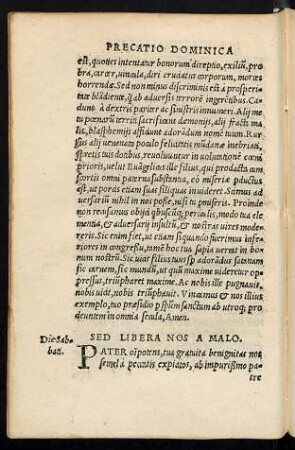 PRECATIO DOMINICA
est, quoties intentatur bonorum direptio, exiliũ, pro
bra, carcer, uincula, diri cruciatus corporum, mortes
horrendæ. Sed non minus discriminis est à prosperita
te blãdiente, ꝗ̃ ab aduersis terrorẽ ingerẽtibus. Cadunt
à dextris pariter ac sinistris innumeri. Alij me
tu pœnarũ territi sacrificant dæmonijs, alij fracti ma
lis, blasphemijs afficiunt adorãdum nomẽ tuum. Rur
sus alij ueneno poculo felicitatis mũdanæ inebriati,
spretis tuis donibus, reuoluuntur in uolutationẽ cœni
prioris, uelut Euãgelicus ille filius, qui producta cum
scortis omni paterna substãtia, eò miseriæ pductus
est, ut porcis etiam suas siliquas inuideret. Scimus ad
uersariũ nihil in nos posse, nisi tu pmiseris. Proinde
non recusamus obijci quibuscũq; periculis, modo tua cle
mentia, & aduersarij insultũ, & nostras uires mode
reris. Sic enim fiet, ut etiam si quando fuerimus infe
riores in congressu, tamẽ hoc tua sapia uertat in bo
num nostrũ. Sic uicit filius tuus sp adorãdus satanam
sic carnem, sic mundũ, ut quũ maxime uideretur op
pressus, triũpharet maxime. Ac nobis ille pugnauit,
nobis uicit, nobis triũphauit. Vincamus & nos illius
exemplo, tuo præsidio p spĩm sanctum ab utroq; proce
dentem in omnia secula, Amen.
SED LIBERA NOS A MALO.
Die Sab-
bati.
PATER oĩpotens, tua gratuita benignitas nos
semel à peccatis expiatos, ab impurissimo pa
tre